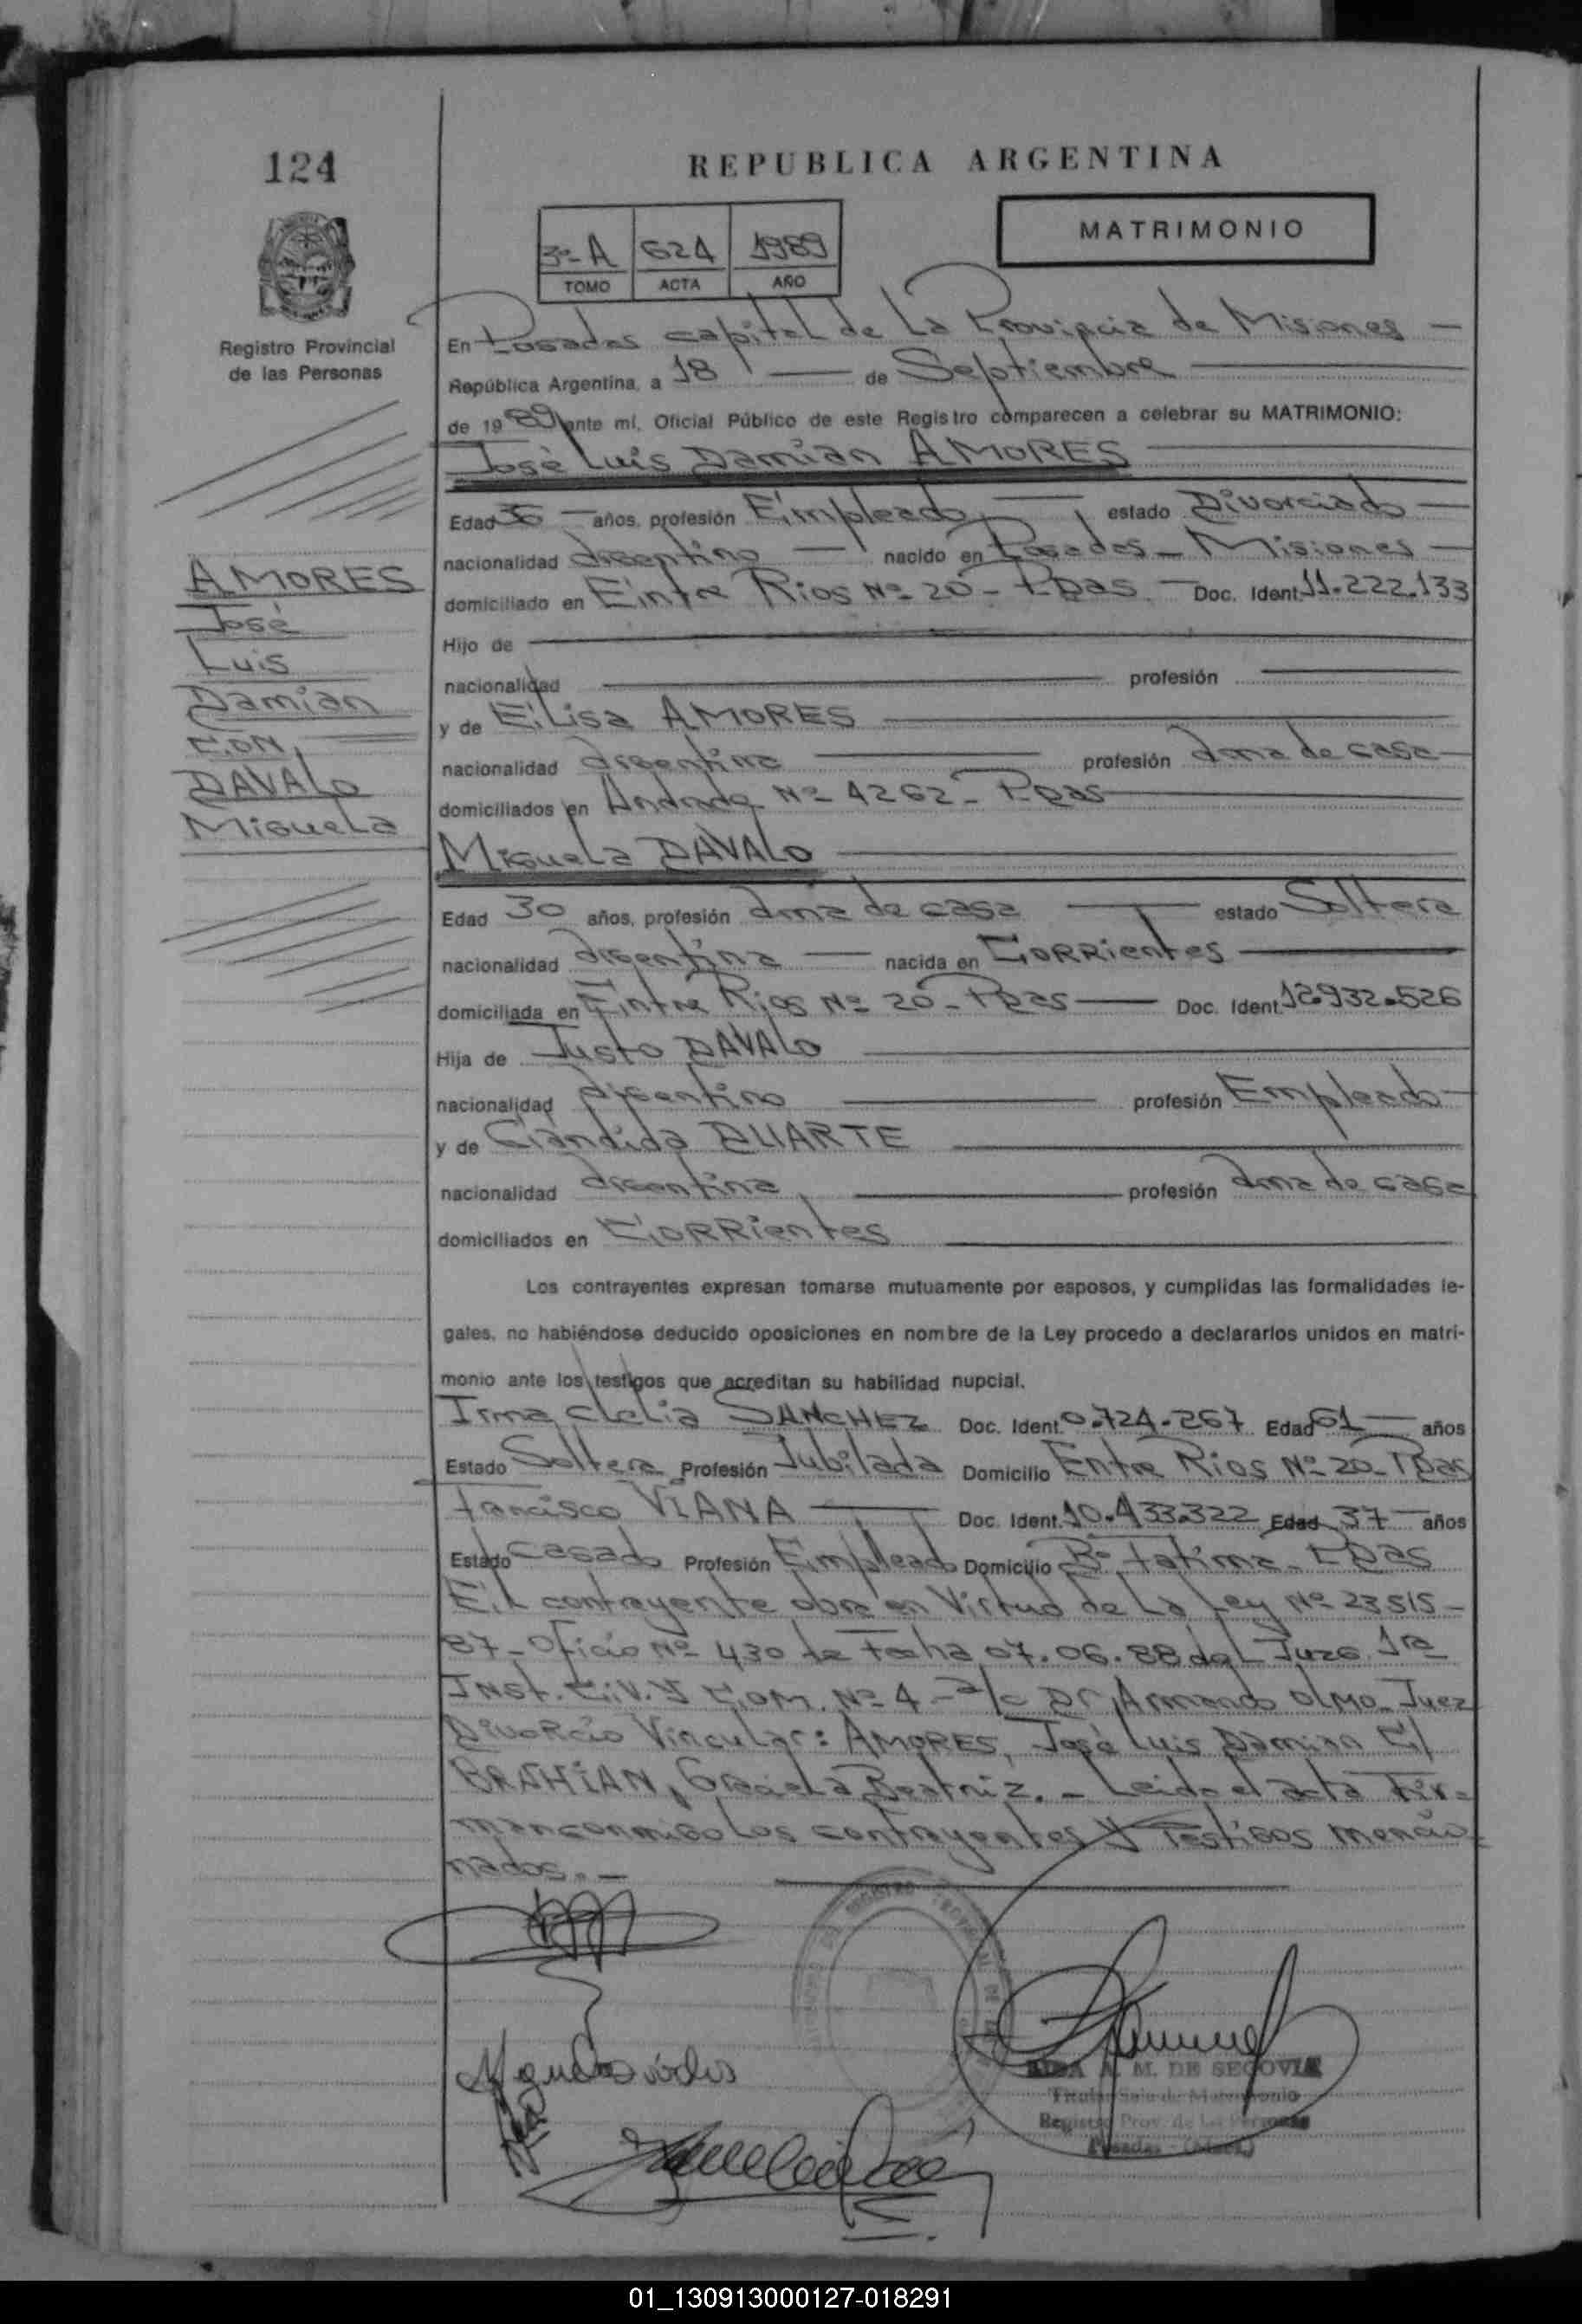 124
REPUBLICA ARGENTINA
MATRIMONIO
3º-A 624 1989
TOMO ACTA AÑO
Registro Provincial
de las Personas
AMORES
José
Luis
Damian
CON
DAVALO
Miguela
En Posadas capital de La Provincia de Misiones
República Argentina, a 18 de Septiembre
de 1989 ante mí, Oficial Público de este Registro comparecen a celebrar su MATRIMONIO:
José Luis Damian AMORES
Edad 36 años, profesión Empleado estado Divorciado
nacionalidad argentino nacido en Posadas - Misiones
domiciliado en Entre Rios Nº 20 - Pdas. Doc. Ident. 11.222.133
Hijo de
nacionalidad profesión
y de Elisa AMORES
nacionalidad argentina profesión ama de casa
domiciliados en Andrade Nº 4262 - Pdas
Miguela DAVALO
Edad 30 años, profesión ama de casa estado Soltera
nacionalidad argentina nacida en Corrientes
domiciliada en Entre Rios Nº 20 - Pdas Doc. Ident. 12.932.526
Hija de Justo DAVALO
nacionalidad argentino profesión Empleado
y de Cándida DUARTE
nacionalidad argentina profesión ama de casa
domiciliados en Corrientes
Los contrayentes expresan tomarse mutuamente por esposos, y cumplidas las formalidades le-
gales, no habiéndose deducido oposiciones en nombre de la Ley procedo a declararlos unidos en matri-
monio ante los testigos que acreditan su habilidad nupcial.
Irma Clelia SANCHEZ Doc. Ident. 0.724.267 Edad 61 años
Estado Soltera Profesión Jubilada Domicilio Entre Rios Nº 20 - Pdas
Francisco VIANA Doc. Ident. 10.433.322 Edad 37 años
Estado casado Profesión Empleado Domicilio Bº Fatima - Pdas
El contrayente obra en Virtud de La Ley Nº 23515-
87 - Oficio Nº 430 de Fecha 07.06.88 del Juzg. 1ra
Inst. Civ. y Com. Nº 4 - a/c Dr. Armando OLMO - Juez
Divorcio Vincular: AMORES, José Luis Damian C/
BRAHIAN, Graciela Beatriz. - Leida el acta Fir-
man conmigo Los contrayentes y Testigos mencio-
nados. -
M. DE SEGOVIA
Titular Sala de Matrimonio
Registro Prov. de las Personas
Posadas - (Mnes.)
01_130913000127-018291